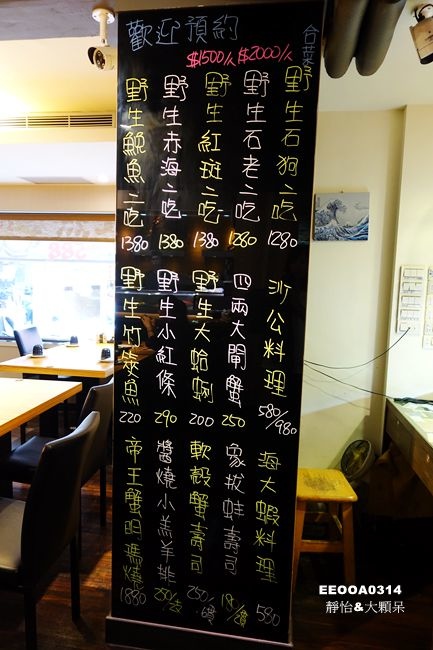 歡迎預約
$1500/人 $2000/人
合菜
野生石狗二吃 1280
野生石老二吃 1280
野生紅斑二吃 1380
野生赤海二吃 1380
野生鮸魚二吃 1380
沙公料理 580/980
四兩大閘蟹 250
野生大蛤蜊 200
野生小紅條 290
野生竹筴魚 220
海大蝦料理 580
象拔蚌壽司
軟殼蟹壽司
醬燒小羔羊排
帝王蟹明瑪燒 1880
EEOOA0314
靜怡&大顆呆